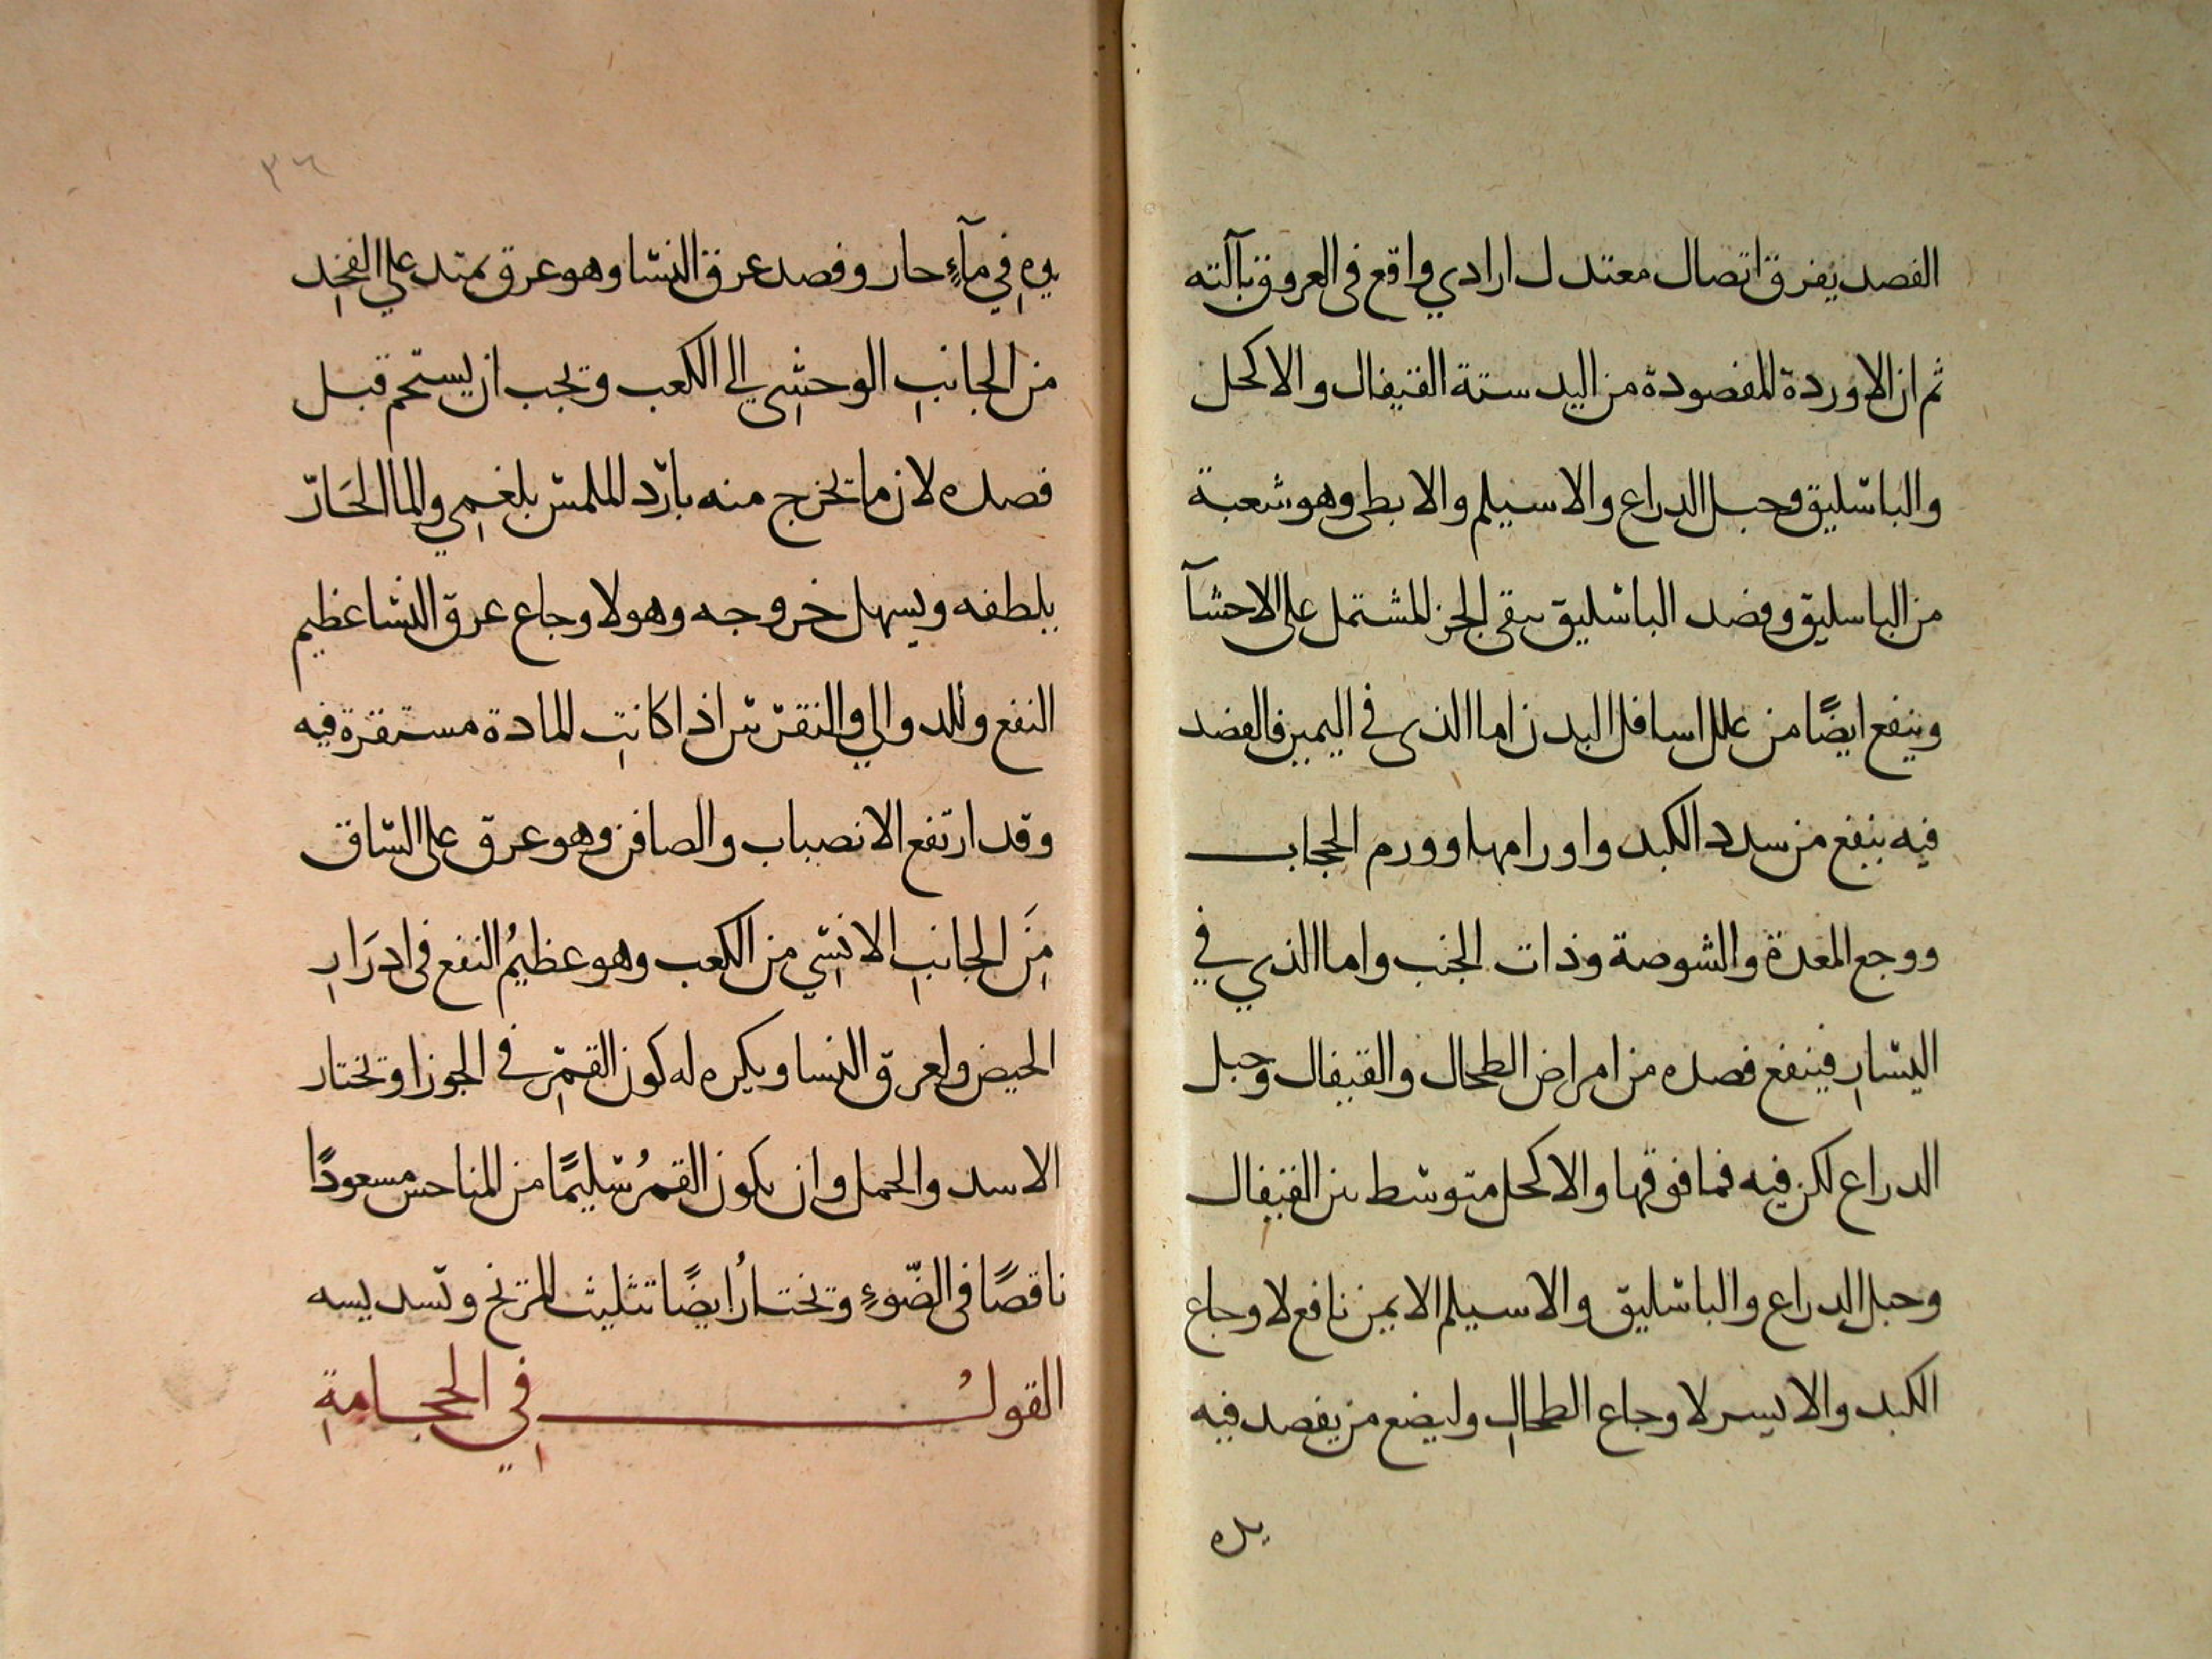 الفصد يفرق اتصال معتدل ارادي واقع فى العروق بآلته
ثم ان الاوردة المفصودة من اليد ستة القيفال والاكحل
والباسليق وحبل الدراع والاسيلم والابطى وهو شعبة
من الباسليق وفصد الباسليق ينقى الجز المشتمل على الاحشآ
وينفع ايضًا من علل اسافل البدن اما الذى في اليمين فالفصد
فيه ينفع من سدد الكبد واورامها وورم الحجاب
ووجع المعدة والشوصة وذات الجنب واما الذي في
اليسارِ فينفع فصده من امراض الطحال والقيفال وحبل
الدراع لكن فيه فما فوقها والاكحل متوسط بين القيفال
وحبل الدراع والباسليق والاسيلم الايمن نافع لاوجاع
الكبد والايسر لاوجاع الطحالِ وليضع من يفصد فيه
يده
٣٦
يدهِ فِي مآءٍ حار وفصد عرق النسا وهو عرق يمتد علي الفخِد
من الجانبِ الوحشِي الى الكعب ويجب ان يستحم قبل
فصده لان ما يخرج منه بارد الملمس بلغمِي والما الحَارّ
يلطفه ويسهل خروجه وهو لاوجاع عرق النسا عظيم
النفع وللدوالي والنقرس اذا كانتِ المادة مستقرة فيه
وقد ارتفع الانصباب والصافن وهو عرق على الساق
مِنَ الجانبِ الانسِي من الكعب وهو عظيمُ النفع فى ادرَارِ
الحيض ولعرق النسا ويكره له كون القمرِ في الجوزا ويختار
الاسد والحمل وان يكون القمرُ سليمًا من المناحس مسعودًا
ناقصًا فى الضّوءٍ ويختارُ ايضًا تثليث المريخ وتسديسه
القولُ فِي الحجامةِ